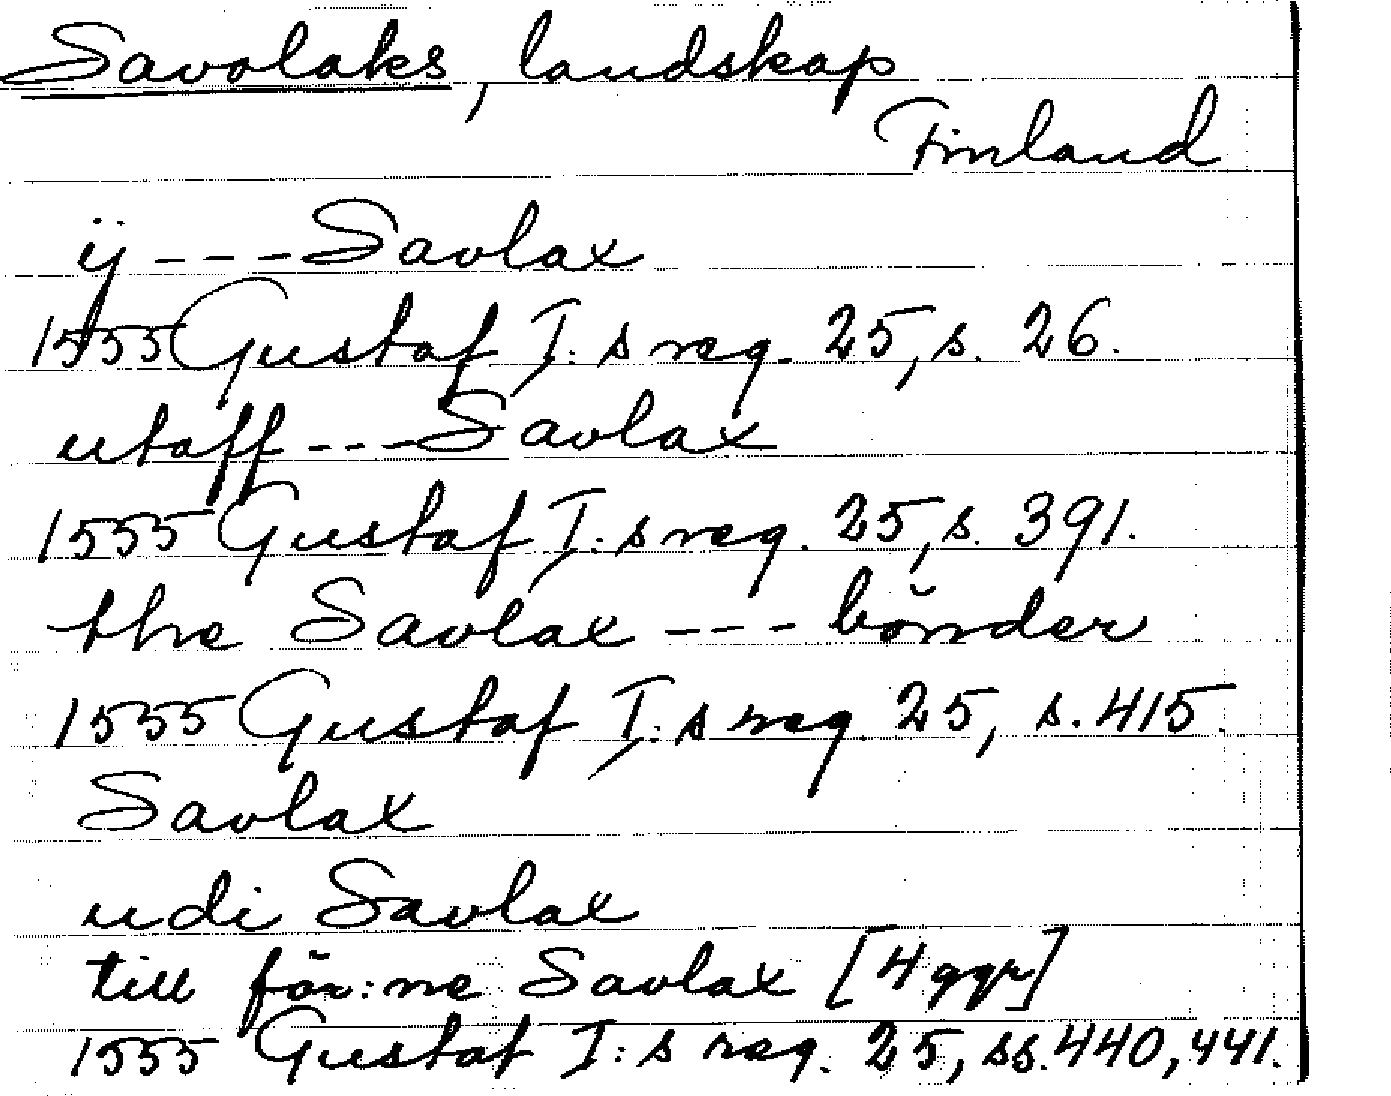 Savolaks, landskap
Finland
ij --- Savlax
1555 Gustaf I:s reg. 25, s. 26.
utaff --- Savlax
1555 Gustaf I:s reg. 25, s. 391.
the Savlax --- bönder
1555 Gustaf I:s reg. 25, s. 415.
Savlax
udi Savlax
till för:ne Savlax [4 ggr]
1555 Gustaf I:s reg. 25, ss. 440, 441.